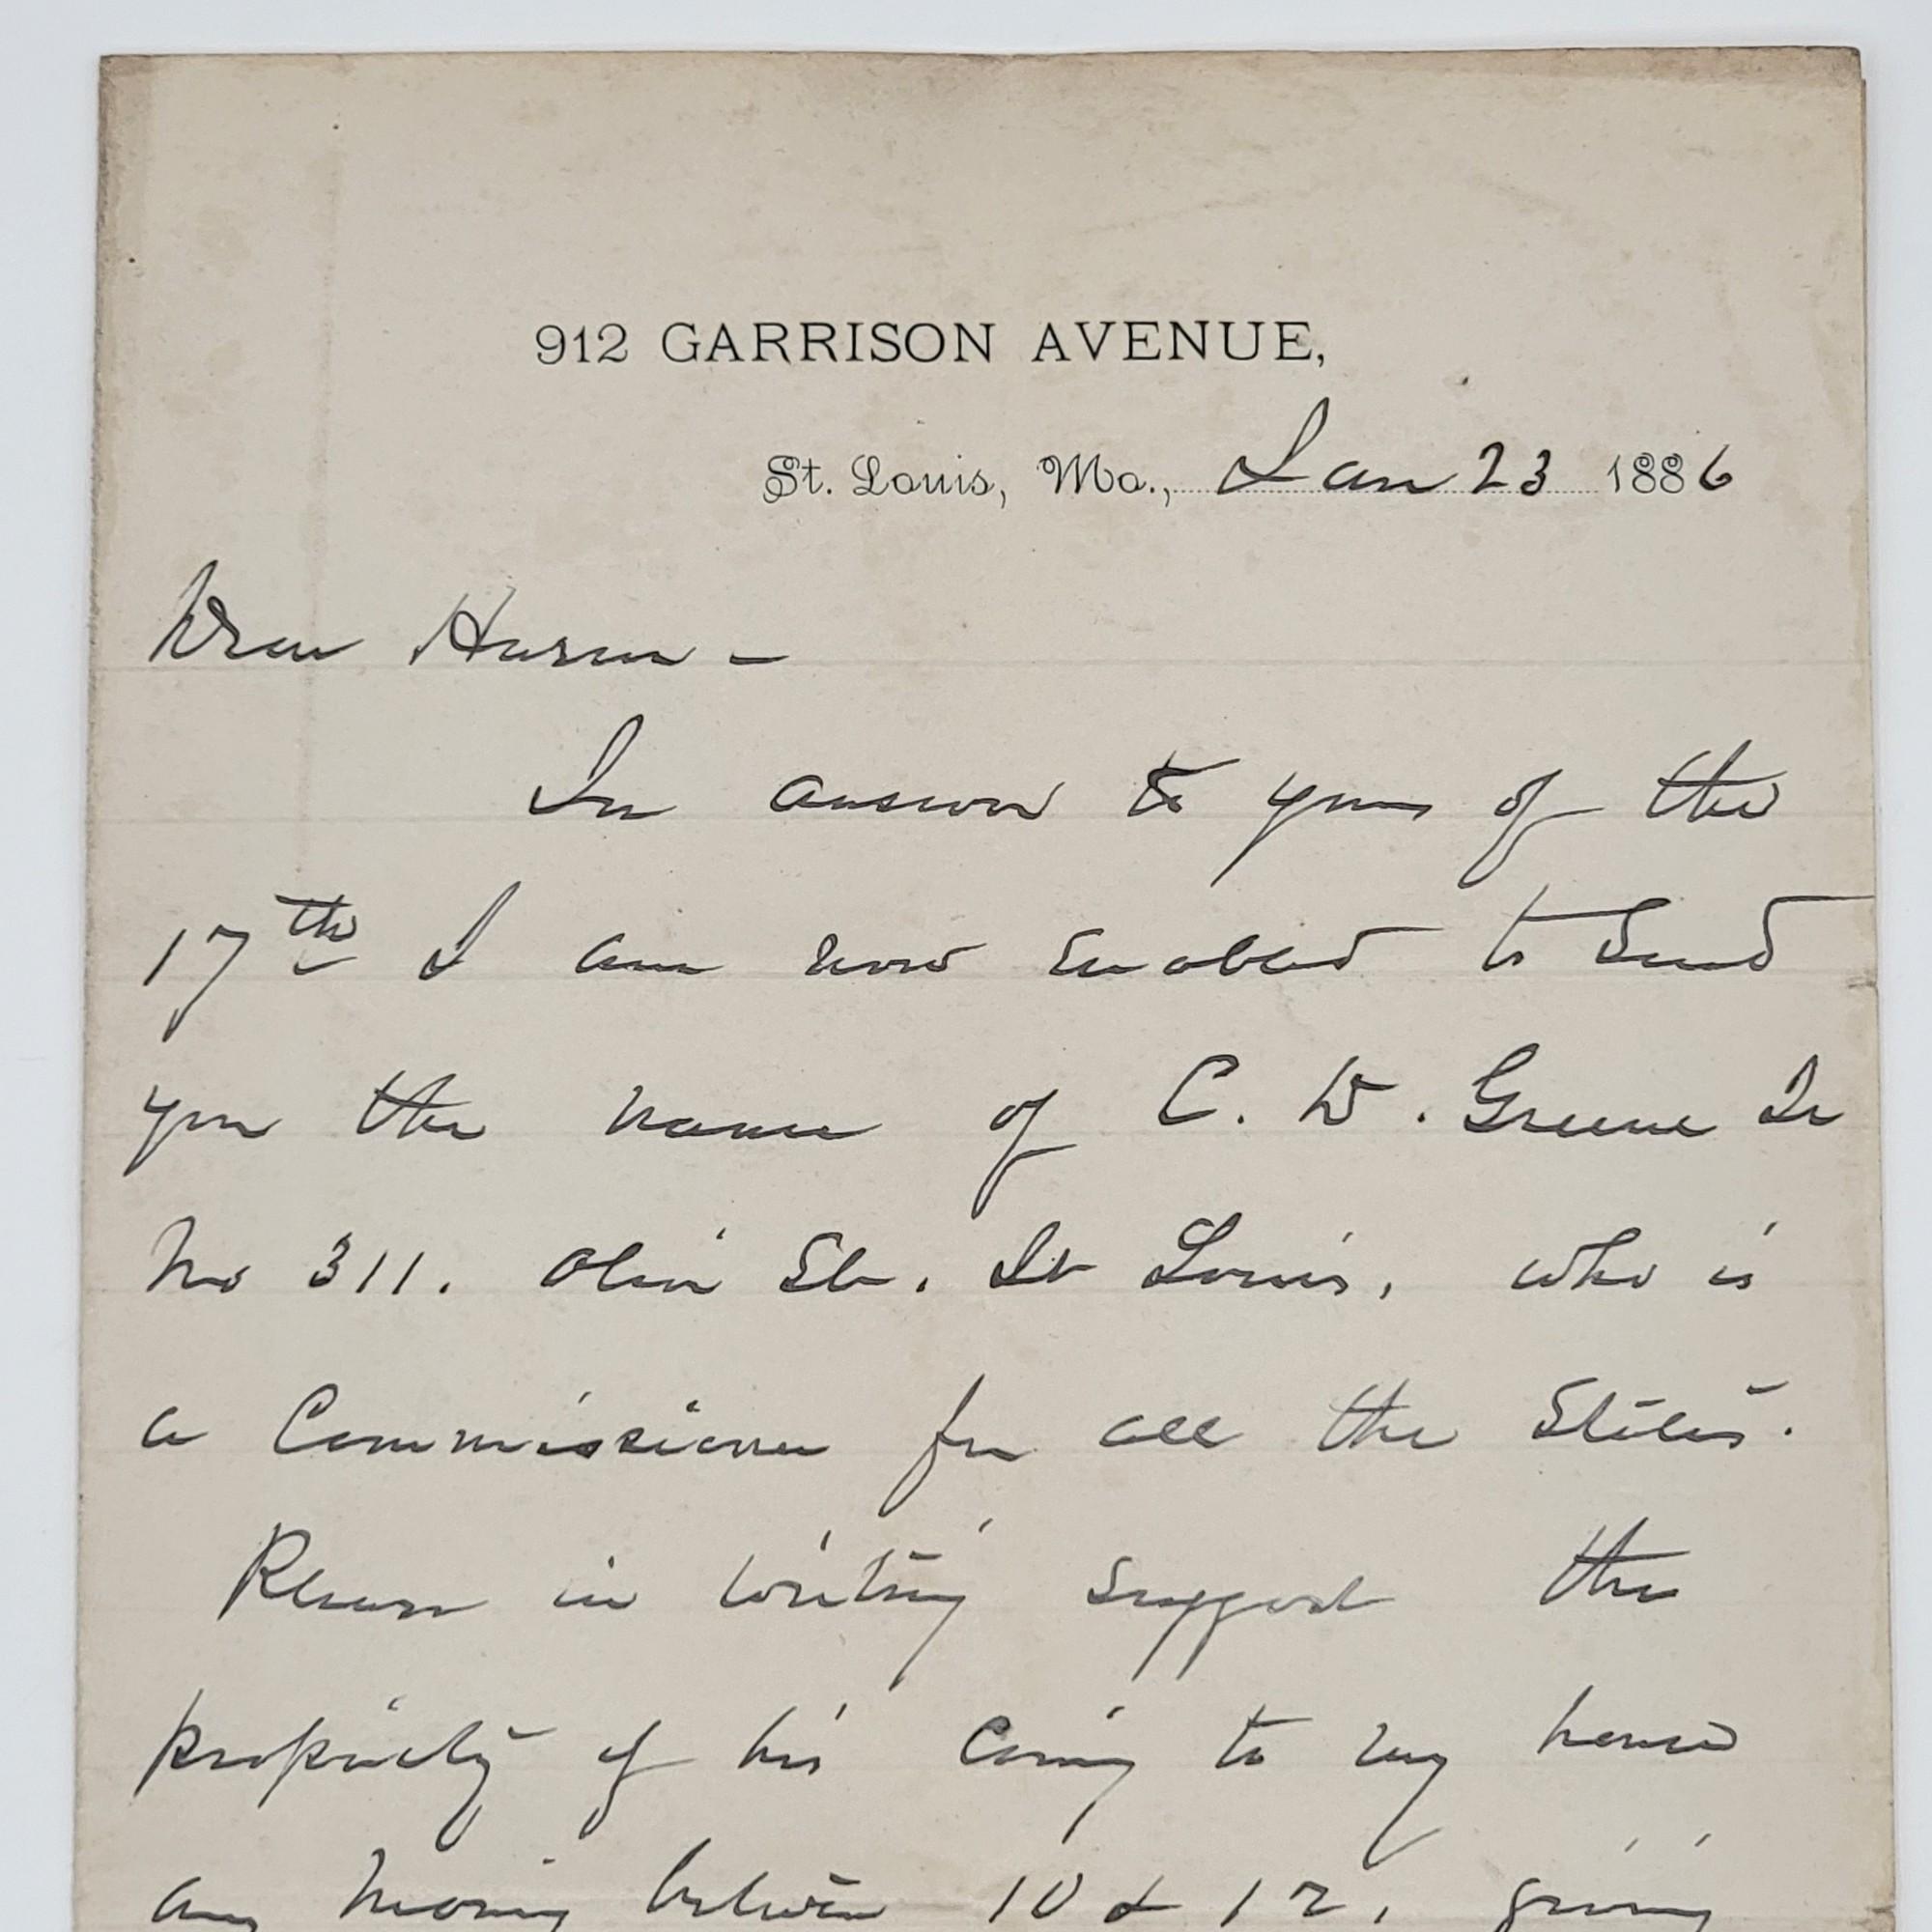 912 GARRISON AVENUE,
St. Louis, Mo., Jan 23 1886
Dear
In answer to yours of the
17th I am now enabled to send
you the name of C. W. Greene Jr
No 311. Olive St. St Louis, who is
a Commissioner for all the States.
Please in writing suggest the
propriety of his coming to my house
any morning between 10 & 12, giving